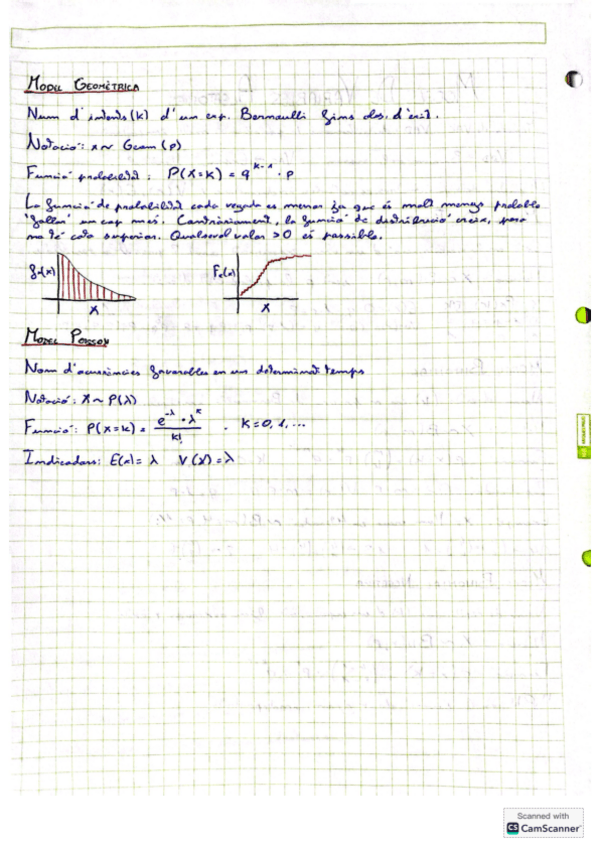 MODEL GEOMÈTRICA
Num d'intents (k) d'un exp. Bernoulli fins obs. d'èxit.
Notació: x ~ Geom (p)
Funció probabilitat: P(X=k) = q^{k-1} · p
La funció de probabilitat cada vegada es menor ja que és molt menys probable
"fallar" un cop més. Contràriament, la funció de distribució creix, però
no té cota superior. Qualsevol valor >0 és possible.
fₓ(x)
x
Fₓ(x)
x
MODEL POISSON
Nom d'ocurrències favorables en un determinat temps
Notació: X ~ P(λ)
Funció: P(X=k) = e^{-λ} · λ^k / k! . K=0, 1, ...
Indicadors: E(x)= λ V(X)=λ
Scanned with
CS CamScanner